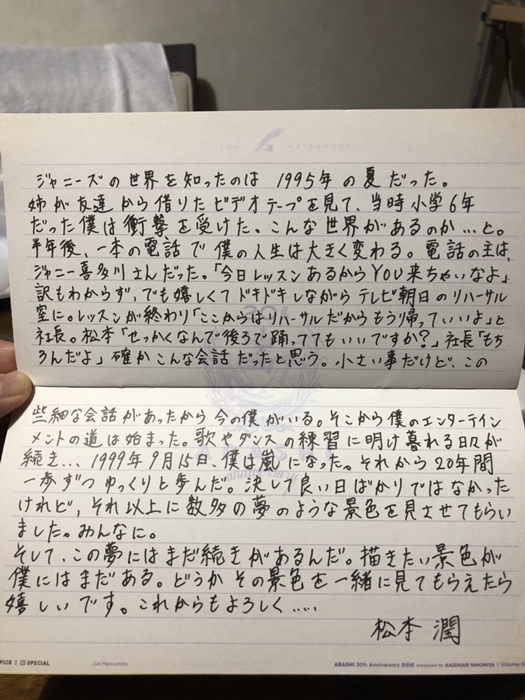 ジャニーズの世界を知ったのは 1995年の夏だった。
姉が友達から借りたビデオテープを見て、当時小学6年
だった僕は衝撃を受けた。こんな世界があるのか…と。
半年後、一本の電話で僕の人生は大きく変わる。電話の主は、
ジャニー喜多川さんだった。「今日レッスンあるからYOU来ちゃいなよ」
訳もわからず、でも嬉しくてドキドキしながらテレビ朝日のリハーサル
室に。レッスンが終わり「ここからはリハーサルだからもう帰っていいよ」と
社長。松本「せっかくなんで後ろで踊っててもいいですか?」社長「もち
ろんだよ」確かこんな会話だったと思う。小さい事だけど、この
些細な会話があったから今の僕がいる。そこから僕のエンターテイン
メントの道は始まった。歌やダンスの練習に明け暮れる日々が
続き… 1999年9月15日、僕は嵐になった。それから20年間
一歩ずつゆっくりと歩んだ。決して良い日ばかりではなかった
けれど、それ以上に数多の夢のような景色を見させてもらい
ました。みんなに。
そして、この夢にはまだ続きがあるんだ。描きたい景色が
僕にはまだある。どうかその景色を一緒に見てもらえたら
嬉しいです。これからもよろしく‥‥
松本 潤
PICS | SPECIAL Jun Matsumoto ARASHI 20th Anniversary ISSUE produced by KAZUNARI NINOMIYA | Volume